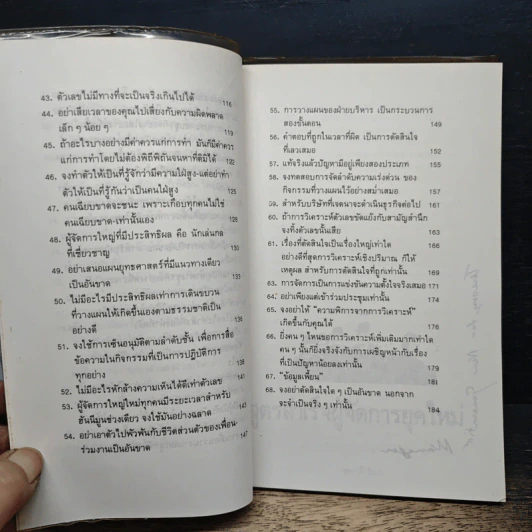 43. ตัวเลขไม่มีทางที่จะเป็นจริงเกินไปได้ 116
44. อย่าเสียเวลาของคุณไปเสี่ยงกับความผิดพลาด
เล็ก ๆ น้อย ๆ 119
45. ถ้าอะไรบางอย่างมีค่าควรแก่การทำ มันก็มีค่าควร
แก่การทำโดยไม่ต้องพิถีพิถันจนหาที่ติมิได้
46. จงทำตัวให้เป็นที่รู้จักว่ามีความใฝ่สูง-แต่อย่าทำ
ตัวให้เป็นที่รู้กันว่าเป็นคนใฝ่สูง 125
47. คนเฉียบขาดจะชนะ เพราะเกือบทุกคนไม่ใช่
คนเฉียบขาด-เท่านั้นเอง 128
48. ผู้จัดการใหญ่ที่มีประสิทธิผล คือ นักเล่นกล
ที่เชี่ยวชาญ
49. อย่าเสนอแผนยุทธศาสตร์ที่มีแนวทางเดียว
เป็นอันขาด 133
50. ไม่มีอะไรมีประสิทธิผลเท่าการเดินขบวน
ที่วางแผนให้เกิดขึ้นเองตามธรรมชาติเป็น
อย่างดี
51. จงใช้การเซ็นอนุมัติตามลำดับชั้น เพื่อการสื่อ
ข้อความในกิจกรรมที่เป็นการปฏิบัติการ
ทุกอย่าง
52. ไม่มีอะไรหักล้างความเห็นได้ดีเท่าตัวเลข
53. ผู้จัดการใหญ่ใหม่ทุกคนมีระยะเวลาสำหรับ
ฮันนีมูนช่วงเดียว จงใช้มันอย่างฉลาด
54. อย่าเอาตัวไปพัวพันกับชีวิตส่วนตัวของเพื่อน-
ร่วมงานเป็นอันขาด 147
55. การวางแผนของฝ่ายบริหาร เป็นกระบวนการ
สองขั้นตอน 149
56. คำตอบที่ถูกในเวลาที่ผิด เป็นการตัดสินใจ
ที่เลวเสมอ 152
57. แท้จริงแล้วปัญหามีอยู่เพียงสองประเภท 155
58. จงทดสอบการจัดลำดับความเร่งด่วน ของ
กิจกรรมที่วางแผนไว้อย่างสม่ำเสมอ 157
59. สำหรับบริษัทที่เจตนาจะดำเนินธุรกิจต่อไป 161
60. ถ้าการวิเคราะห์ตัวเลขขัดแย้งกับสามัญสำนึก
จงทิ้งตัวเลขนั้นเสีย 163
61. เรื่องที่ตัดสินใจเป็นเรื่องใหญ่เท่าใด
อย่างดีที่สุดการวิเคราะห์เชิงปริมาณ ก็ให้
เหตุผล สำหรับการตัดสินใจที่ถูกเท่านั้น
63. การจัดการเป็นการแข่งขันความตั้งใจจริงเสมอ 171
64. อย่าเพียงแต่เข้าร่วมประชุมเท่านั้น 174
65. จงอย่าให้ "ความพิการจากการวิเคราะห์"
เกิดขึ้นกับคุณได้ 176
66. ยิ่งคน ๆ ไหนขอการวิเคราะห์เพิ่มเติมมากเท่าใด
คน ๆ นั้นก็ยิ่งจริงจังกับการเผชิญหน้ากับเรื่อง
ที่เป็นปัญหาน้อยลงเท่านั้น
67. "ข้อมูลเพี้ยน" 181
68. จงอย่าตัดสินใจใด ๆ เป็นอันขาด นอกจาก
จะจำเป็นจริง ๆ เท่านั้น 184